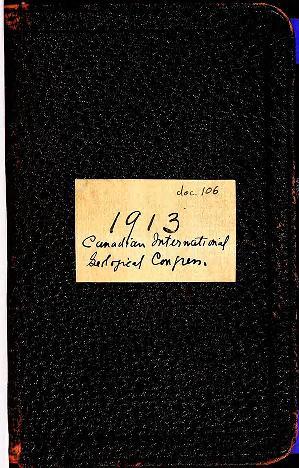 doc. 106
1913
Canadian International
Geological Congress.